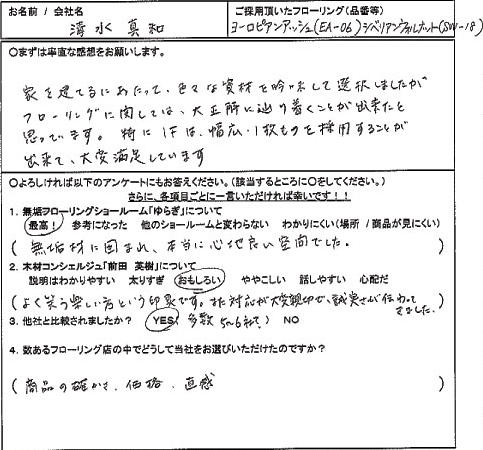 お名前 / 会社名 ご採用頂いたフローリング(品番等)
清水 真和 ヨーロピアンアッシュ(EA-06) シベリアンウォルナット(SW-18)
○まずは率直な感想をお願いします。
家を建てるにあたって、色々な資材を吟味して選択しましたが
フローリングに関しては、大正解に辿り着くことが出来たと
思っています。特に1Fは、幅広・1枚ものを採用することが
出来て、大変満足しています
○よろしければ以下のアンケートにもお答えください。(該当するところに○をしてください。)
さらに、各項目ごとに一言いただければ幸いです!!
1. 無垢フローリングショールーム「ゆらぎ」について
最高! 参考になった 他のショールームと変わらない わかりにくい(場所 / 商品が見にくい)
( 無垢材に囲まれ、本当に心地良い空間でした。 )
2. 木材コンシェルジュ「前田 英樹」について
説明はわかりやすい 太りすぎ おもしろい ややこしい 話しやすい 心配だ
(よく笑う楽しい方という印象です。また対応が大変親切で、誠実さが伝わってきました。)
3. 他社と比較されましたか? YES( 多数 5〜6社? ) NO
4. 数あるフローリング店の中でどうして当社をお選びいただけたのですか?
( 商品の確かさ、価格、直感 )